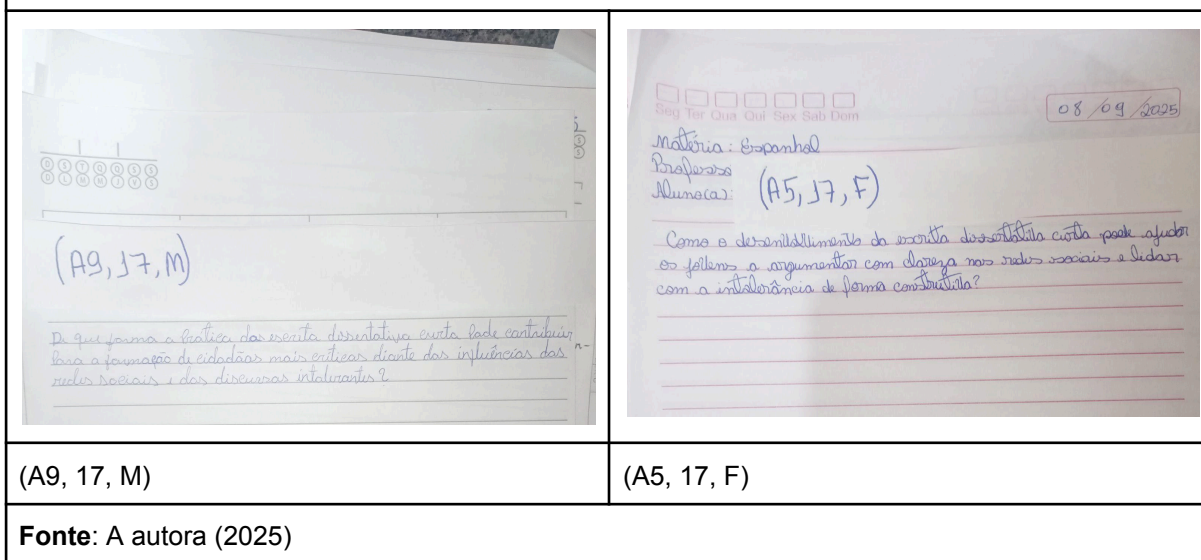 (A9, 17, M)
De que forma a Prática das escrita dissentativa curta Pode contribuir
Para a formação de cidadãos mais críticas diante das influências das
redes sociais e dos discursos intolerantes?
Seg Ter Qua Qui Sex Sab Dom
08/09/2025
Matéria: Espanhol
Professo
Aluno(a):
(A5, 17, F)
Como o desenvolvimento da escrita dissertativa curta pode ajudar
os jovens a argumentar com clareza nas redes sociais e lidar
com a intolerância de forma construtiva?
(A9, 17, M)
(A5, 17, F)
Fonte: A autora (2025)